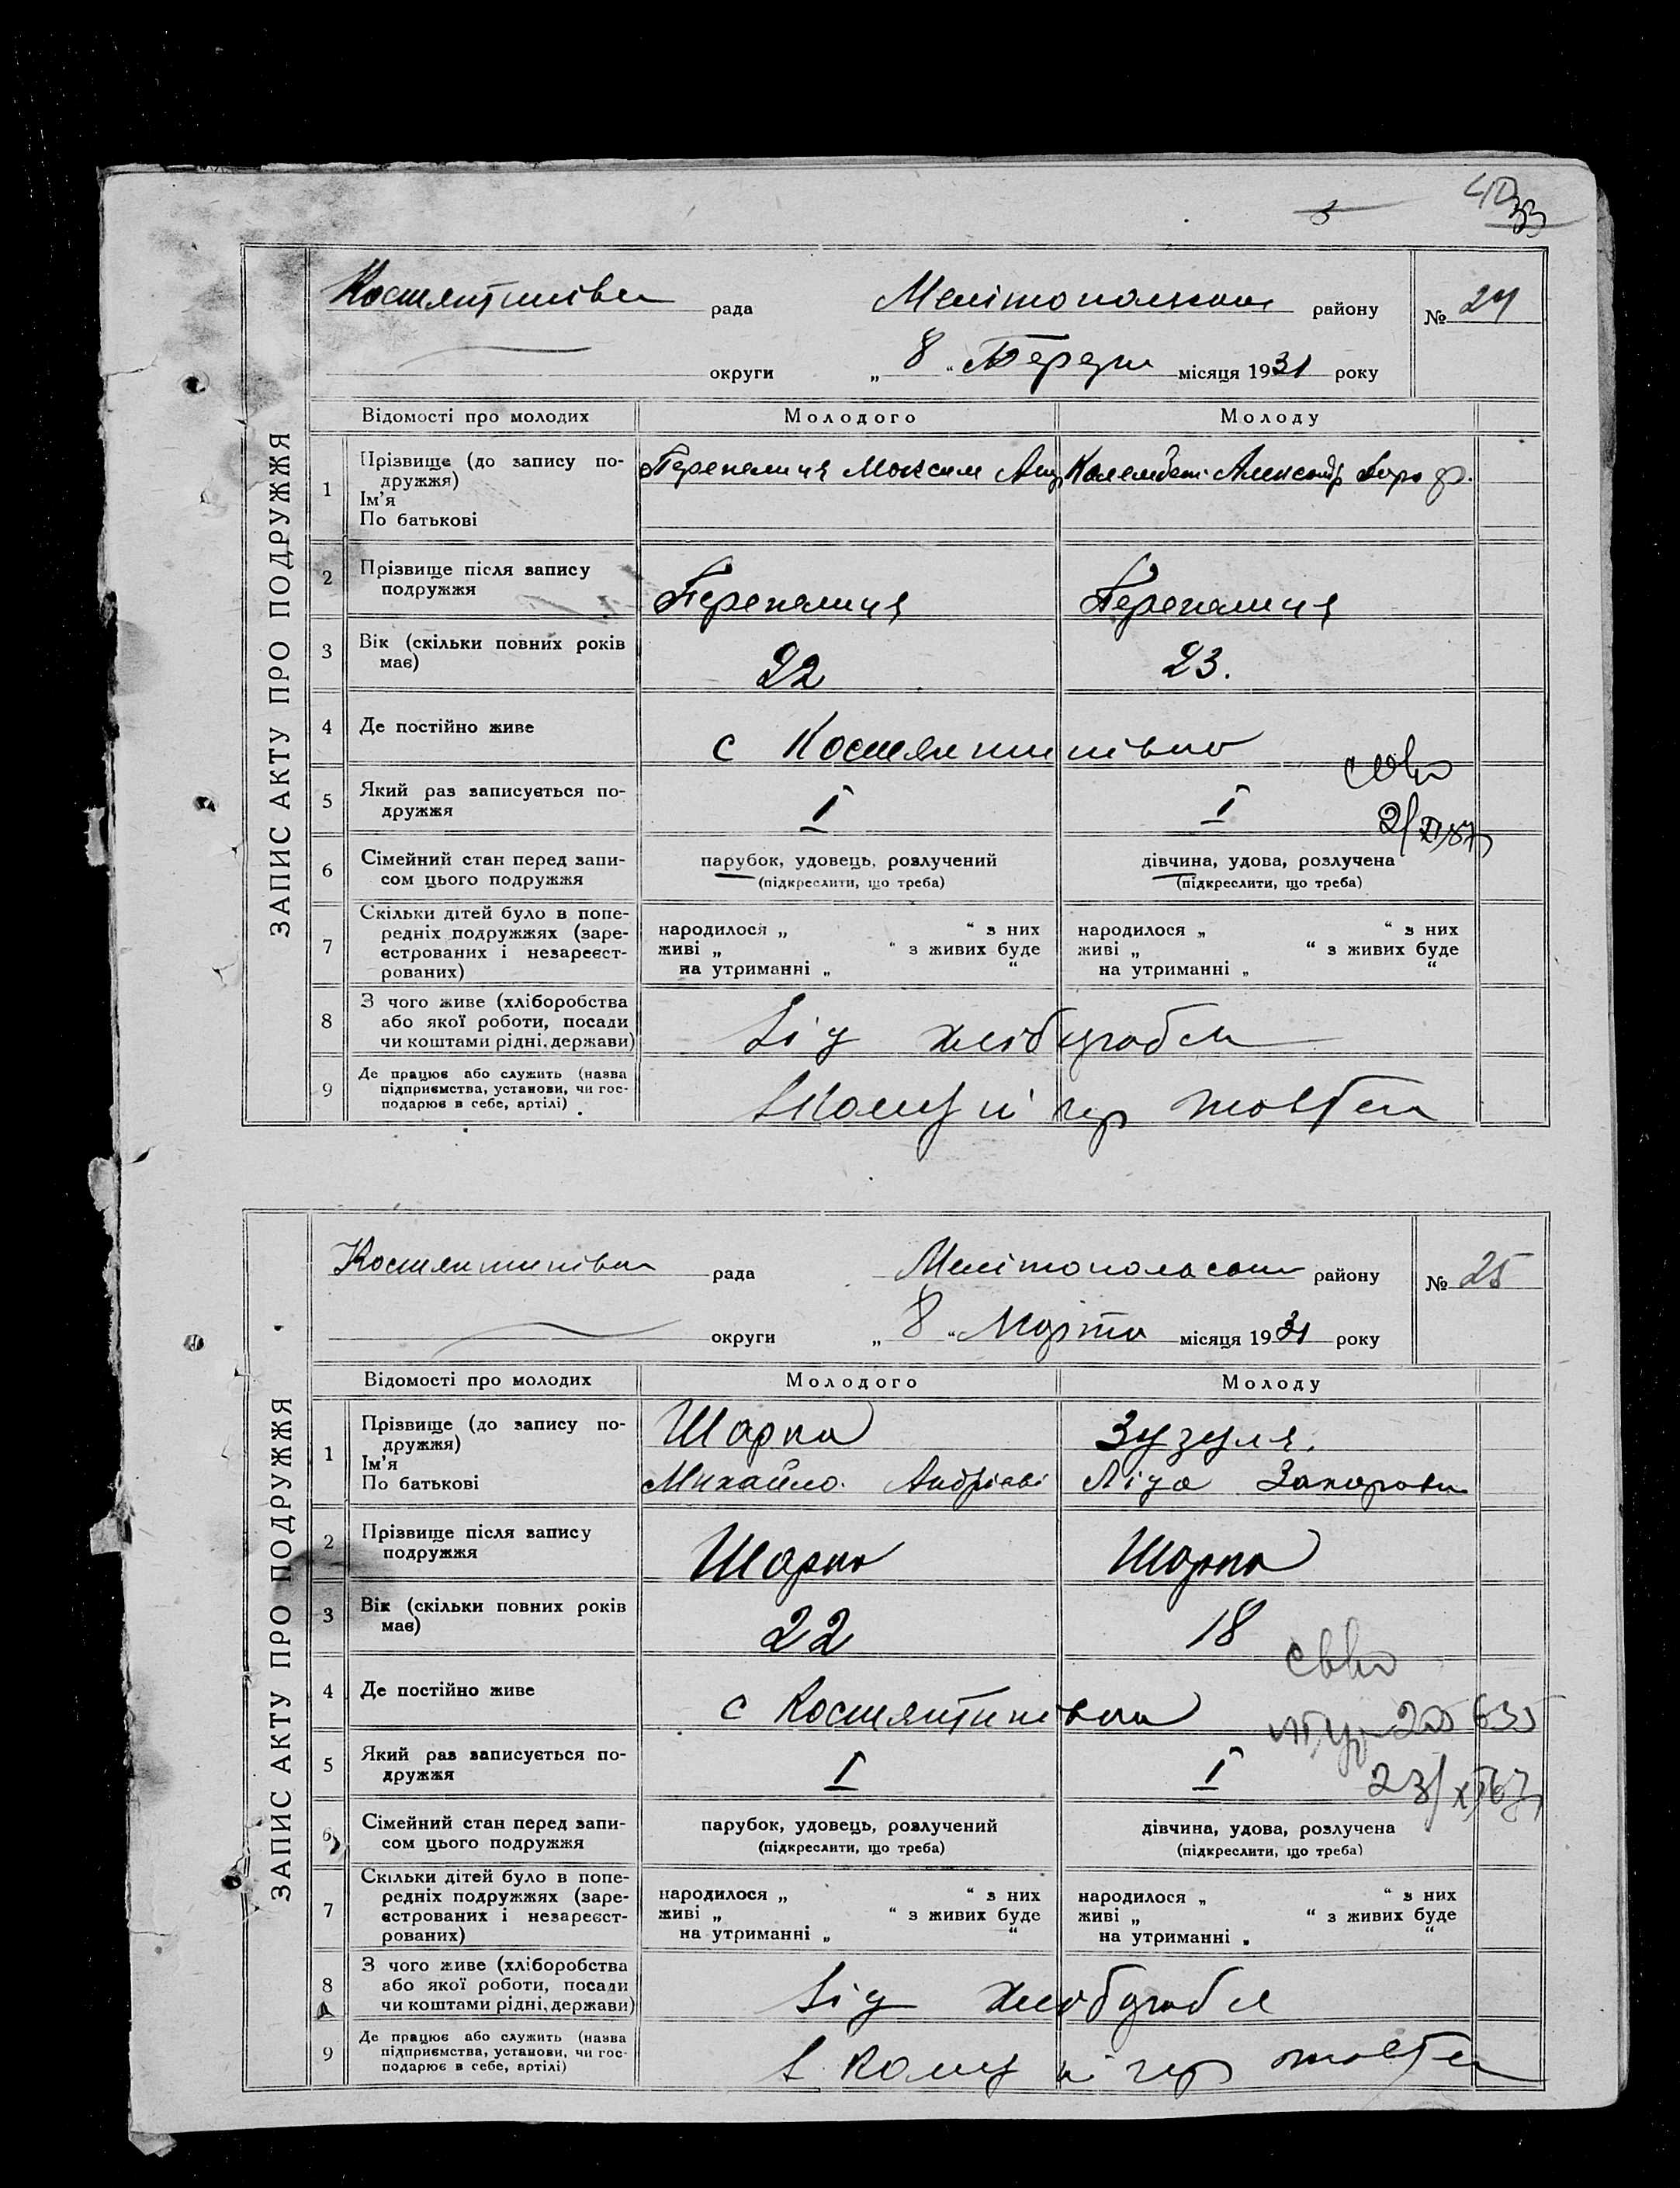 33
ЗАПИС АКТУ ПРО ПОДРУЖЖЯ
Костянтинівка рада Мелітопольськ району № 24
округи „ 8 “ Березня місяця 1931 року
Відомості про молодих Молодого Молоду
1 Прізвище (до запису по-
дружжя)
Ім’я
По батькові
Перепелиця Максим Анд Александр
2 Прізвище після запису
подружжя
Перепелиця Перепелиця
3 Вік (скільки повних років
має)
22 23.
4 Де постійно живе
с Костянтинівка
5 Який раз записується по-
дружжя
I I
6 Сімейний стан перед запи-
сом цього подружжя
парубок, удовець, розлучений дівчина, удова, розлучена
(підкреслити, що треба) (підкреслити, що треба)
7 Скільки дітей було в попе-
редніх подружжях (заре-
єстрованих і незареєст-
рованих)
народилося „ “ з них народилося „ “ з них
живі „ “ з живих буде живі „ “ з живих буде
на утриманні „ “ на утриманні „ “
8 З чого живе (хліборобства
або якої роботи, посади
чи коштами рідні, держави)
від
9 Де працює або служить (назва
підприємства, установи, чи гос-
подарює в себе, артілі)
ЗАПИС АКТУ ПРО ПОДРУЖЖЯ
Костянтинівка рада Мелітопольськ району № 25
округи „ 8 “ Марта місяця 1931 року
Відомості про молодих Молодого Молоду
1 Прізвище (до запису по-
дружжя)
Ім’я
По батькові
Шарка Зузуля.
Михайло Андрієві Ліза Захарови
2 Прізвище після запису
подружжя
Шарка Шарка
3 Вік (скільки повних років
має)
22 18
4 Де постійно живе
с Костянтинівка
5 Який раз записується по-
дружжя
I I
6 Сімейний стан перед запи-
сом цього подружжя
парубок, удовець, розлучений дівчина, удова, розлучена
(підкреслити, що треба) (підкреслити, що треба)
7 Скільки дітей було в попе-
редніх подружжях (заре-
єстрованих і незареєст-
рованих)
народилося „ “ з них народилося „ “ з них
живі „ “ з живих буде живі „ “ з живих буде
на утриманні „ “ на утриманні „ “
8 З чого живе (хліборобства
або якої роботи, посади
чи коштами рідні, держави)
від
9 Де працює або служить (назва
підприємства, установи, чи гос-
подарює в себе, артілі)